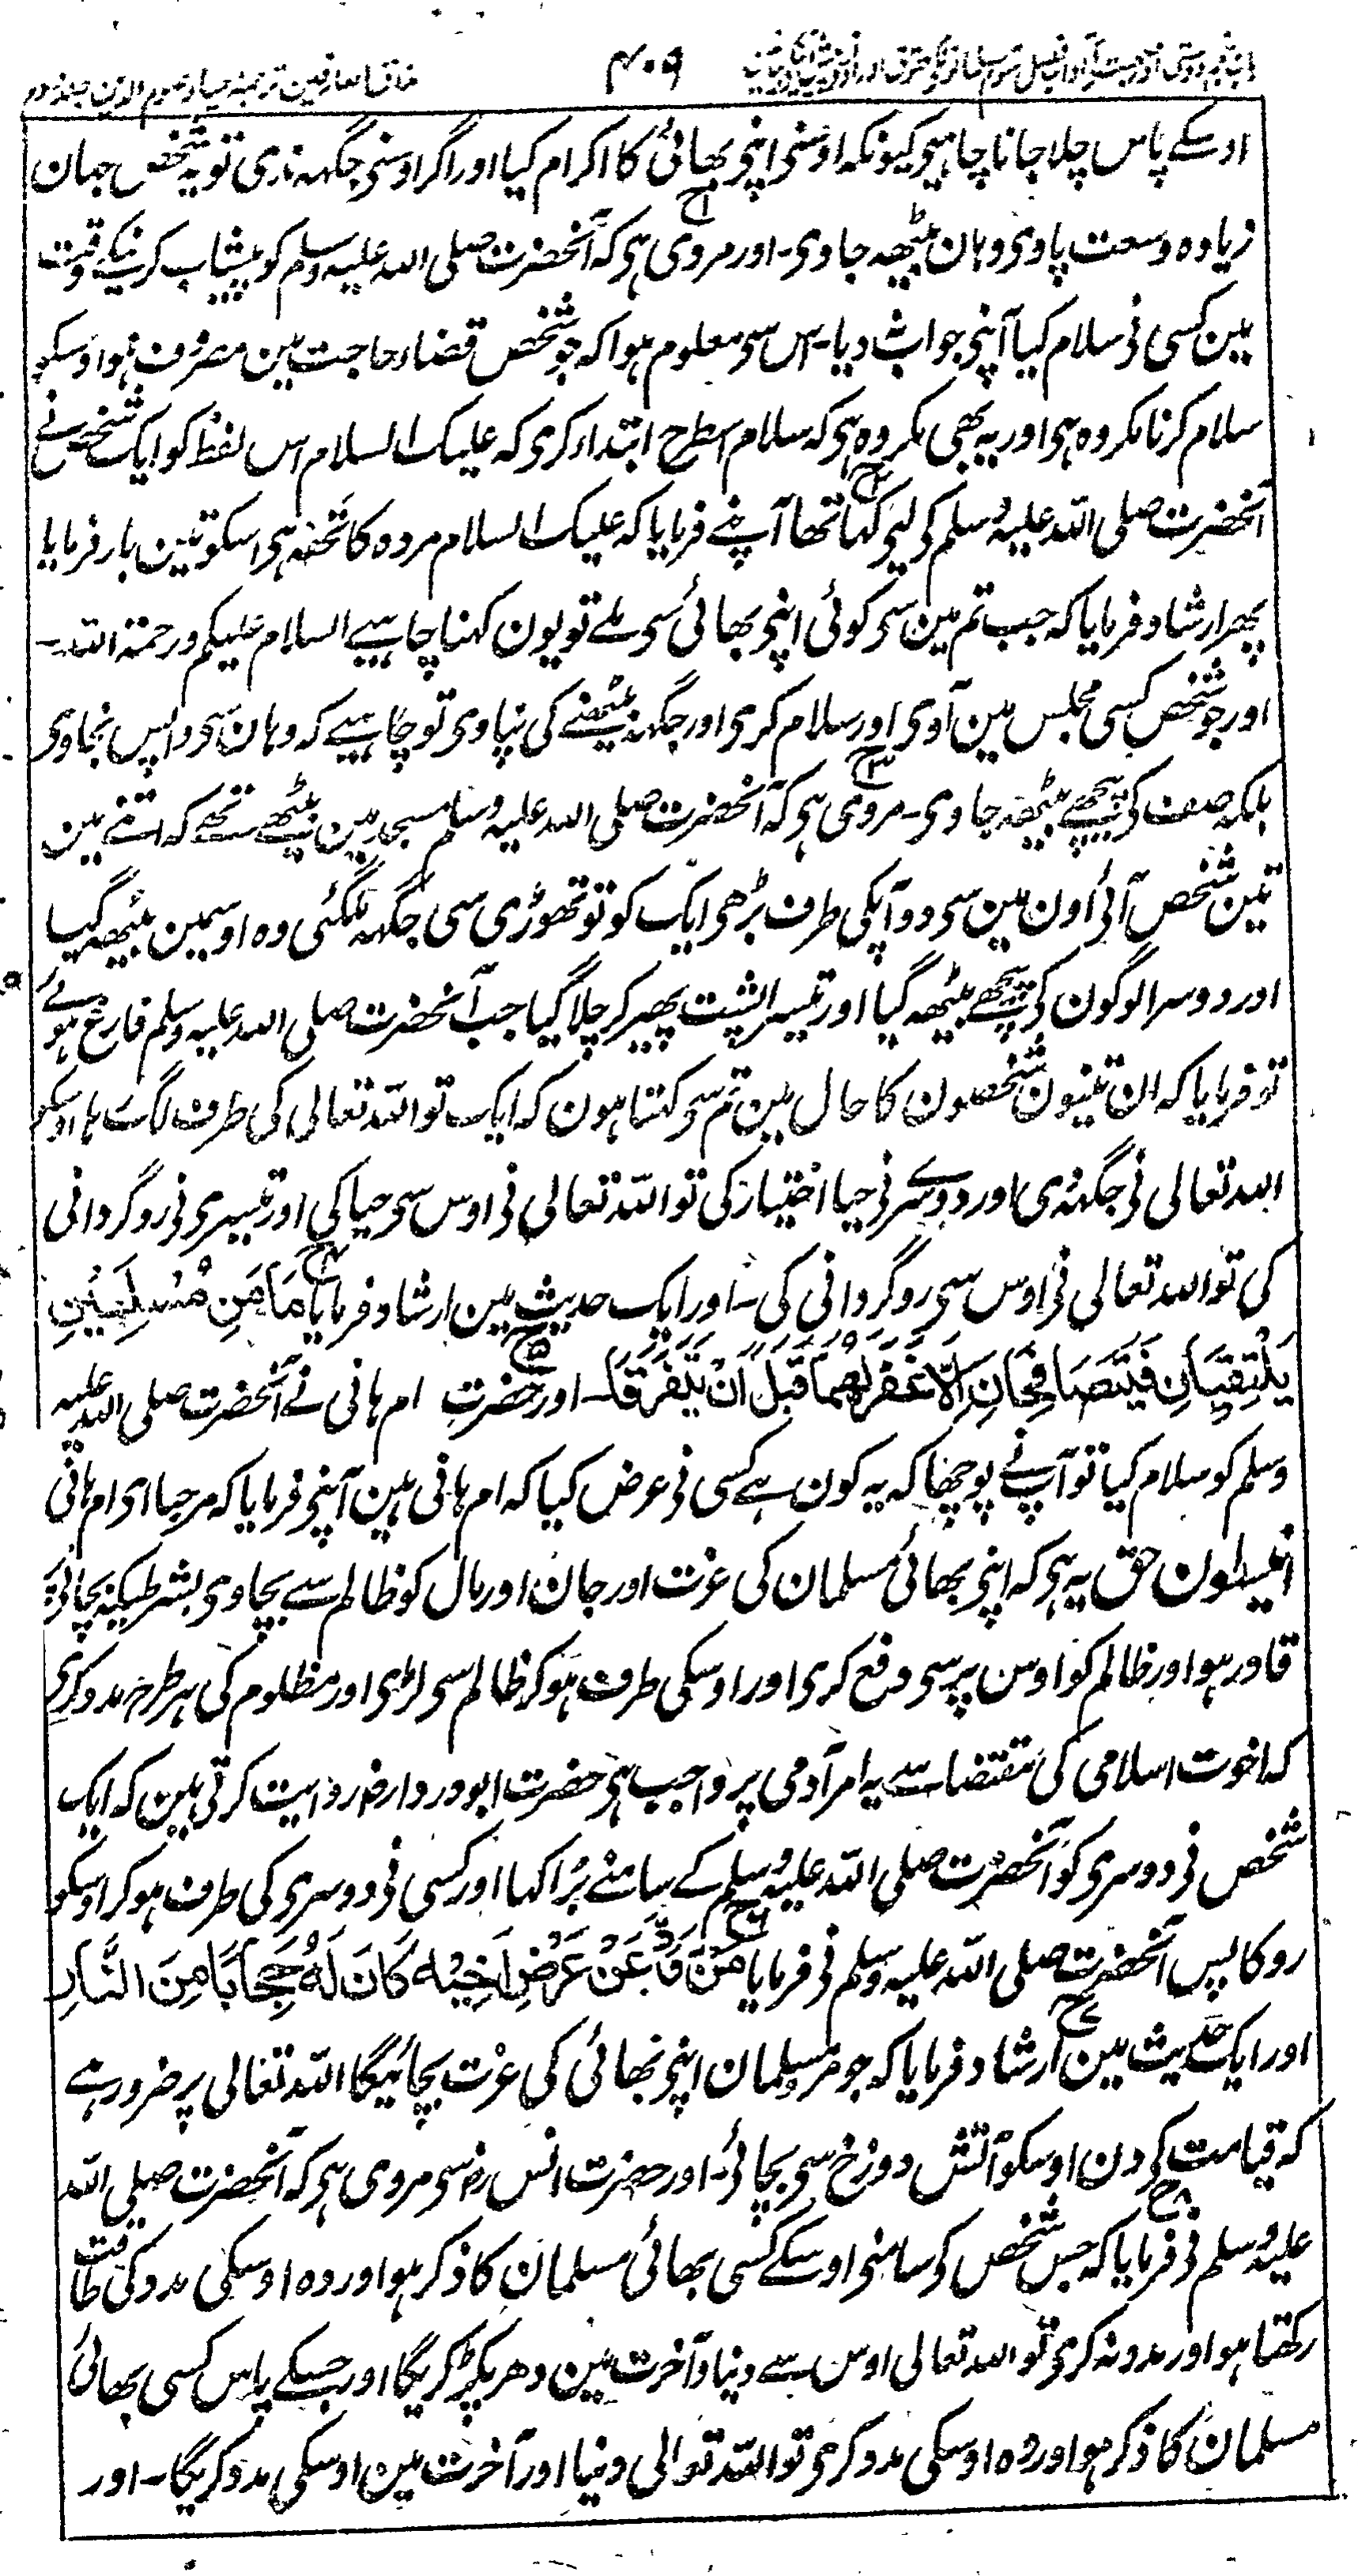 مذاق العارفین ترجمہ احیاء علوم الدین جلد دوم
۴۰۹
اوسکے پاس چلا جانا چاہیے کیونکہ اوسنی اپنی بھائی کا اکرام کیا اور اگر اوسنی جگہہ ندی تو یہ شخص جہان
زیادہ وسعت پاوی وہان بیٹھہ جاوی۔ اور مروی ہی کہ آنحضرت صلی اللہ علیہ وسلم کو پیشاب کرنیکے وقت
مین کسی نی سلام کیا آپنی جواب ندیا۔ اس سی معلوم ہوا کہ جو شخص قضاء حاجت مین مصروف ہو اوسکو
سلام کرنا مکروہ ہی اور یہ بھی مکروہ ہی کہ سلام اسطرح ابتداء کری کہ علیک السلام اس لفظ کو ایک شخص نے
آنحضرت صلی اللہ علیہ وسلم کی لیی کہا تھا آپنے فرمایا کہ علیک السلام مردہ کا تحفہ ہی اسکو تین بار فرمایا
پھر ارشاد فرمایا کہ جب تم مین سی کوئی اپنی بھائی سی ملے تو یون کہنا چاہیے السلام علیکم ورحمۃ اللہ۔
اور جو شخص کسی مجلس مین آوی اور سلام کری اور جگہہ بیٹھنے کی نپاوی تو چاہیے کہ وہان سی واپس نجاوی
بلکہ صف کی پیچھے بیٹھہ جاوی۔ مروی ہی کہ آنحضرت صلی اللہ علیہ وسلم مسجد مین بیٹھے تھے کہ اتنے مین
تین شخص آئی اون مین سی دو آپکی طرف بڑھی ایک کو تو تھوڑی سی جگہہ ملگئی وہ اوسمین بیٹھہ گیا
اور دوسرا لوگون کی پیچھے بیٹھہ گیا اور تیسرا پشت پھیر کر چلا گیا جب آنحضرت صلی اللہ علیہ وسلم فارغ ہوئے
تو فرمایا کہ ان تینون شخصون کا حال مین تم سی کہتا ہون کہ ایک تو اللہ تعالی کی طرف لگ رہا اوسکو
اللہ تعالی نی جگہہ دی اور دوسرے نی حیا اختیار کی تو اللہ تعالی نی اوس سی حیا کی اور تیسری نی روگردانی
کی تو اللہ تعالی نی اوس سی روگردانی کی۔ اور ایک حدیث مین ارشاد فرمایا مَا مَن مُسْلِمَیْنِ
یَلْتَقِیَانِ فَیَتَصَافَحَانِ اِلَّا غُفِرَ لَهُمَا قَبْلَ اَنْ یَتَفَرَّقَا۔ اور حضرت ام ہانی نے آنحضرت صلی اللہ علیہ
وسلم کو سلام کیا تو آپنے پوچھا کہ یہ کون ہے کسی نی عرض کیا کہ ام ہانی ہین آپنی فرمایا کہ مرحبا ای ام ہانی
انیسلون حق یہ ہی کہ اپنی بھائی مسلمان کی عزت اور جان اور مال کو ظالم سے بچاوی بشرطیکہ بچانی پر
قادر ہو اور ظالم کو اوس پر سی دفع کری اور اوسکی طرف ہو کر ظالم سی لڑی اور مظلوم کی ہر طرح مدد کری
کہ اخوت اسلامی کی مقتضا سے یہ امر آدمی پر واجب ہی حضرت ابو دردا رض روایت کرتی ہین کہ ایک
شخص نی دوسری کو آنحضرت صلی اللہ علیہ وسلم کے سامنے برا کہا اور کسی نی دوسری کی طرف ہو کر اوسکو
روکا پس آنحضرت صلی اللہ علیہ وسلم نی فرمایا مَنْ رَدَّ عَنْ عَرَضِ اَخِیْهِ كَانَ لَهُ حِجَابًا مِنَ النَّارِ
اور ایک حدیث مین ارشاد فرمایا کہ جو مسلمان اپنی بھائی کی عزت بچائیگا اللہ تعالی پر ضرور ہے
کہ قیامت کی دن اوسکو آتش دوزخ سی بچائی۔ اور حضرت انس رض سی مروی ہی کہ آنحضرت صلی اللہ
علیہ وسلم نی فرمایا کہ جس شخص کی سامنی اوسکے کسی بھائی مسلمان کا ذکر ہو اور وہ اوسکی مدد کی طاقت
رکھتا ہو اور مدد نہ کری تو اللہ تعالی اوس سے دنیا و آخرت مین دھر پکڑ کریگا اور جسکے پاس کسی بھائی
مسلمان کا ذکر ہو اور وہ اوسکی مدد کری تو اللہ تعالی دنیا اور آخرت مین اوسکی مدد کریگا۔ اور